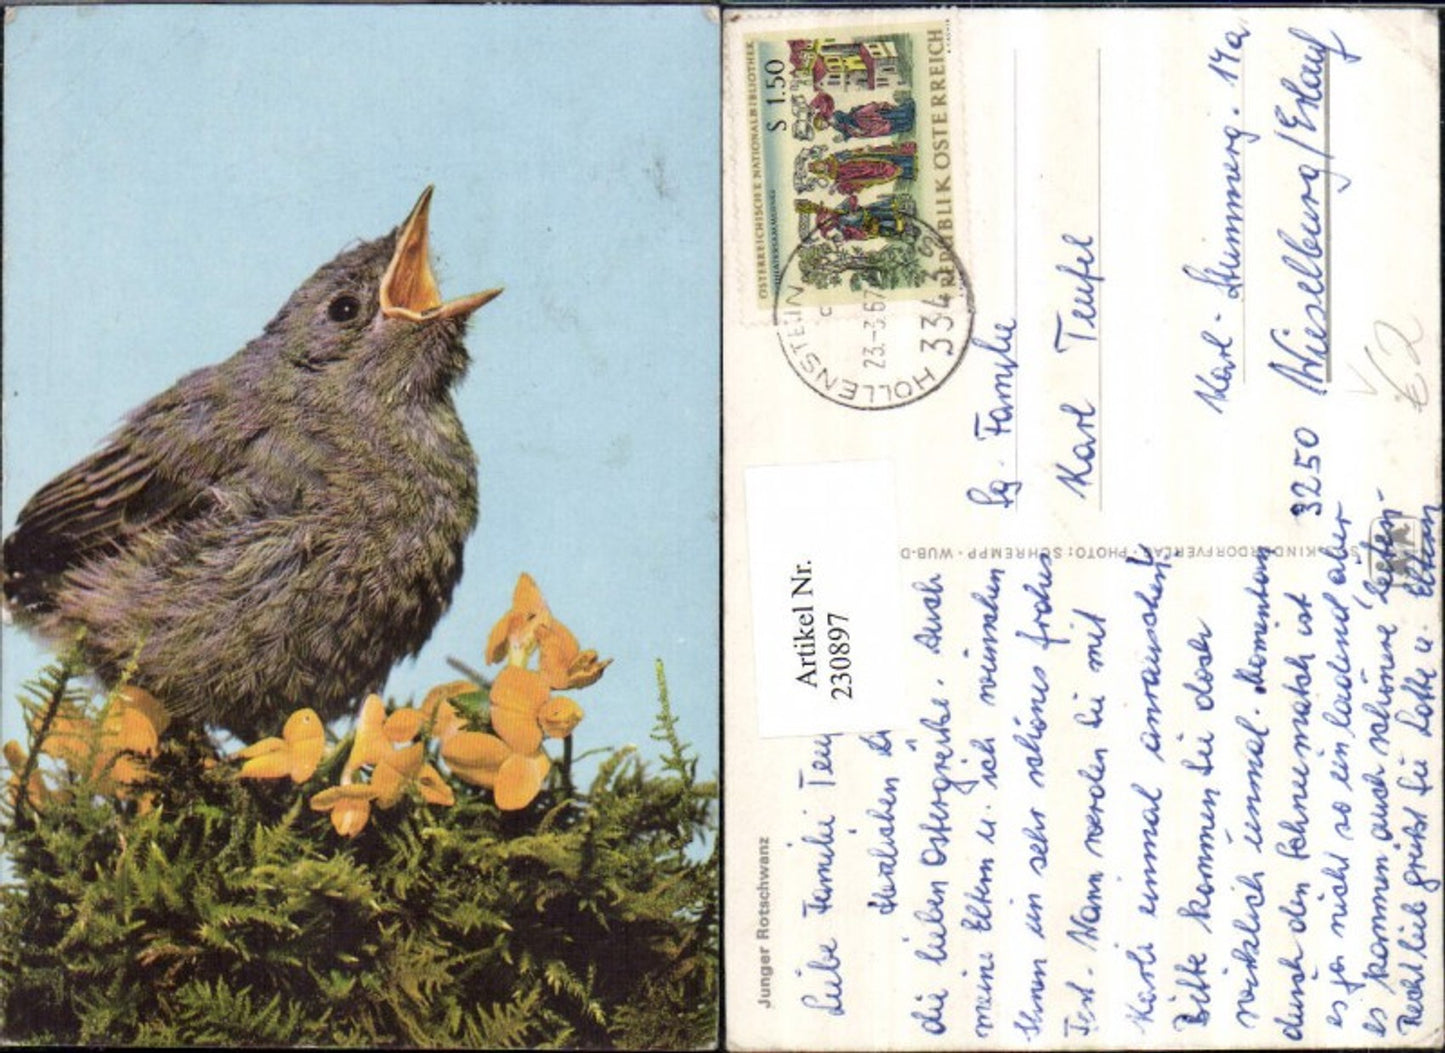 ÖSTERREICHISCHE NATIONALBIBLIOTHEK
S 1.50
REPUBLIK ÖSTERREICH
HOLLENSTEIN
23.-3.67
334
Artikel Nr.
230897
Fam
Karl Teufel
Karl-
14a
3250 Wieselburg/Erlauf
€ 2
KINDERDORFVERLAG · PHOTO: SCHREMPP · WUB-D
Junger Rotschwanz
Liebe Familie Teu
Herzlichen D
die lieben Ostergrüße. Auch
meine Eltern u. ich wünschen
Ihnen ein sehr schönes frohes
Fest. Wann werden Sie mit
Karli einmal anrauschen?
Bitte kommen Sie doch
wirklich einmal. Momentan
durch den Schneematsch ist
es ja nicht so einladend aber
es kommen auch schöne Zeiten.
Recht lieb grüßt Sie Lotte u. Eltern